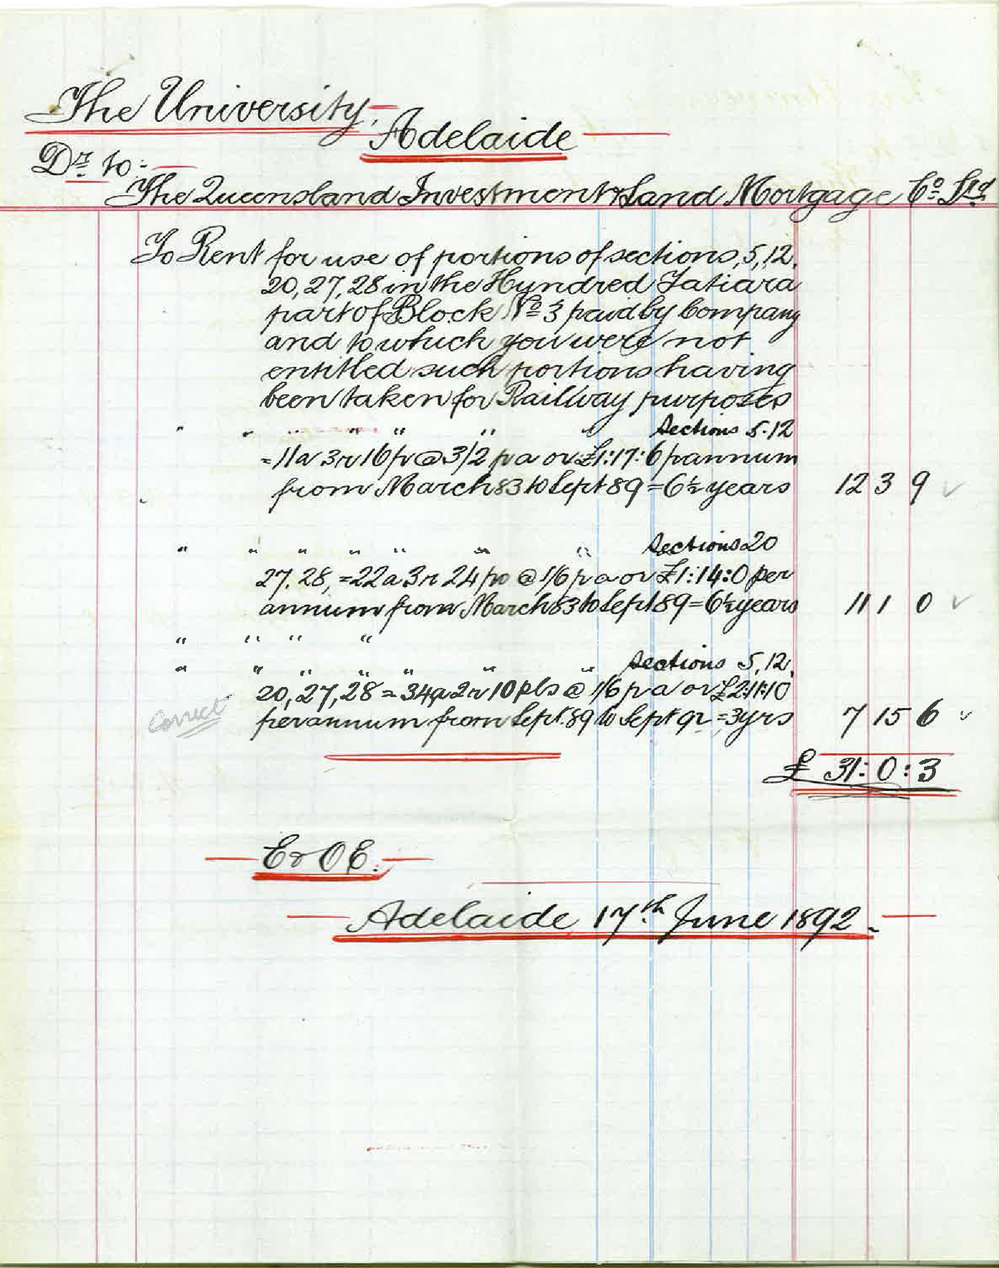 The University,
Adelaide
Dr to:-
The Queensland Investment & Land Mortgage Co Ltd
To Rent for use of portions of sections, 5, 12,
20, 27, 28 in the Hundred Tatiara
part of Block No 3 paid by Company
and to which you were not
entitled such portions having
been taken for Railway purposes
" " " " " " " Sections 5.12
= 11a 3r 16p @ 3/2 pa or £1:17:6 p annum
from March 83 to Sept 89 = 6½ years 12 3 9
" " " " " " " Sections 20
27. 28, = 22a 3r 24 po @ 1/6 p a or £1:14:0 per
annum from March 83 to Sept 89 = 6½ years 11 1 0
" " " "
" " " " " " " Sections 5, 12,
20, 27, 28 = 34a 2r 10 pls @ 1/6 p a or £2:11:10
per annum from Sept. 89 to Sept 92 = 3 yrs 7 15 6
Correct
£ 31:0:3
E & O E.
Adelaide 17th June 1892.